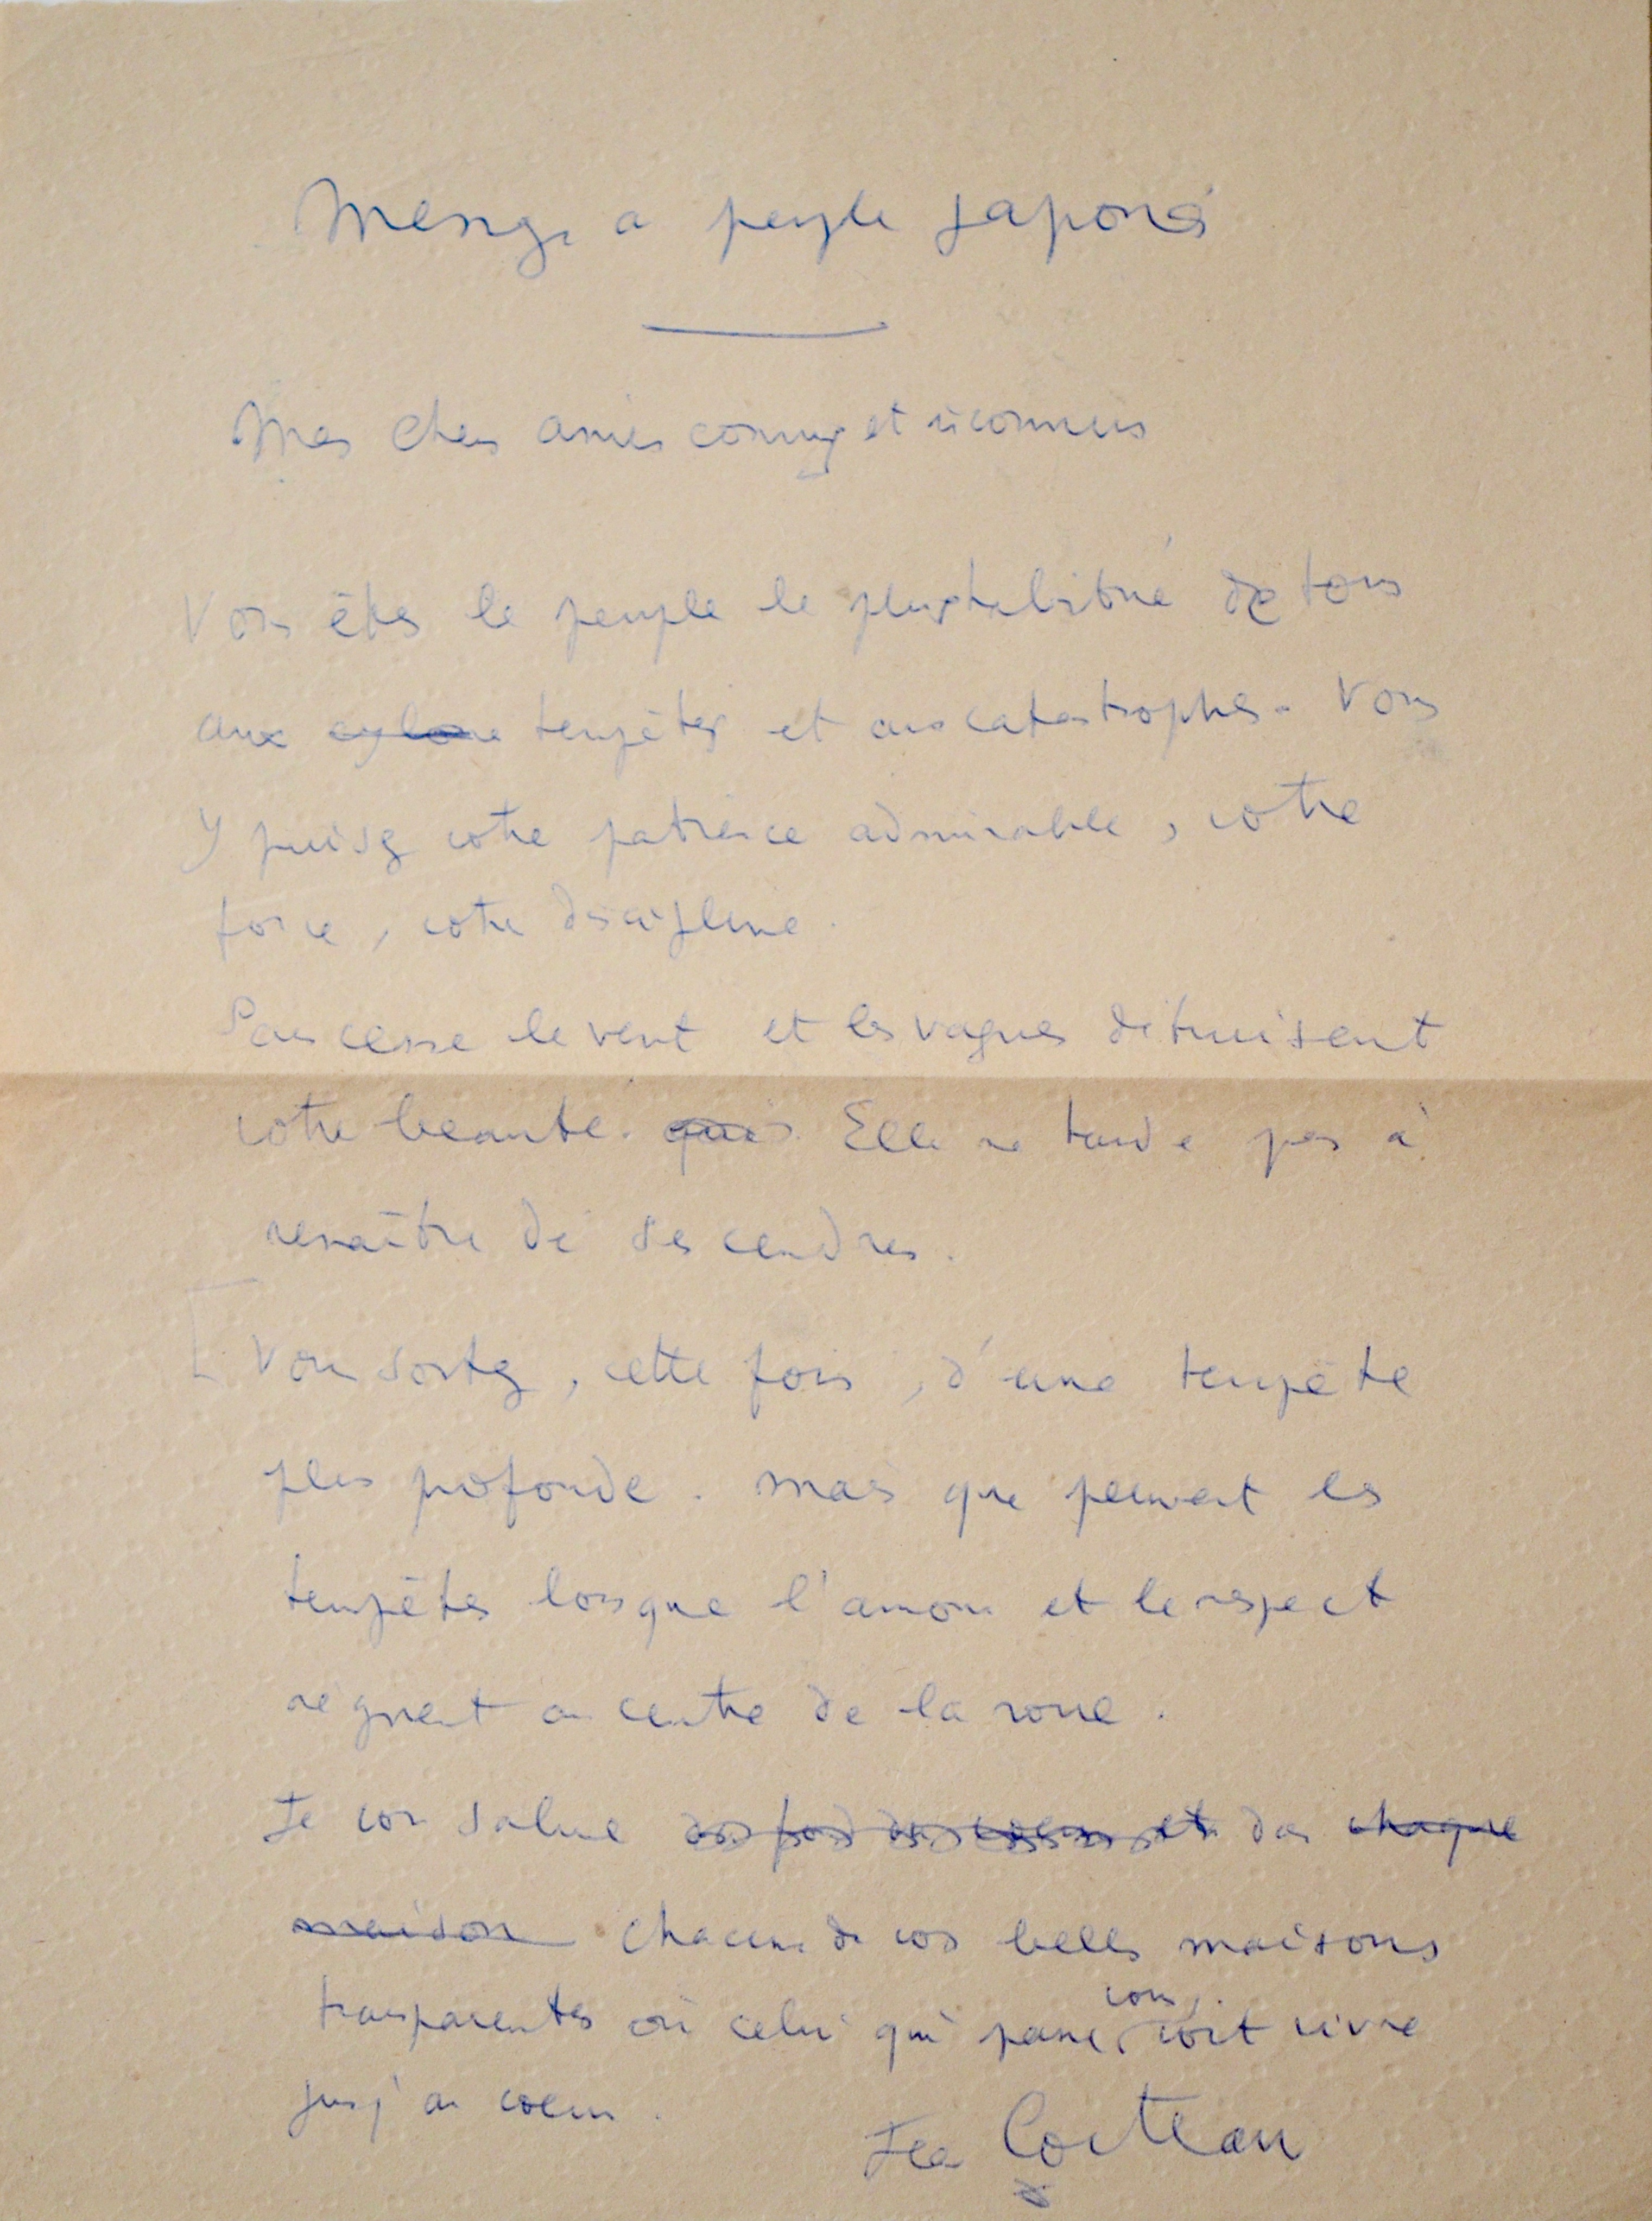 Message au peuple Japonais
Mes chers amis connus et inconnus
Vous êtes le peuple le plus habitué de tous
aux cyclone tempêtes et aux catastrophes. Vous
y puisez votre patience admirable, votre
force, votre discipline.
Sans cesse le vent et les vagues détruisent
votre beauté. qui Elle ne tarde pas à
renaître de ses cendres.
Vous sortez, cette fois, d'une tempête
plus profonde. Mais que peuvent les
tempêtes lorsque l'amour et le respect
règnent au centre de la roue.
Je vous salue du fond du coeur et dans chaque
maison chacune de vos belles maisons
transparentes où celui qui passe vous voit vivre
jusqu'au coeur.
Jean Cocteau